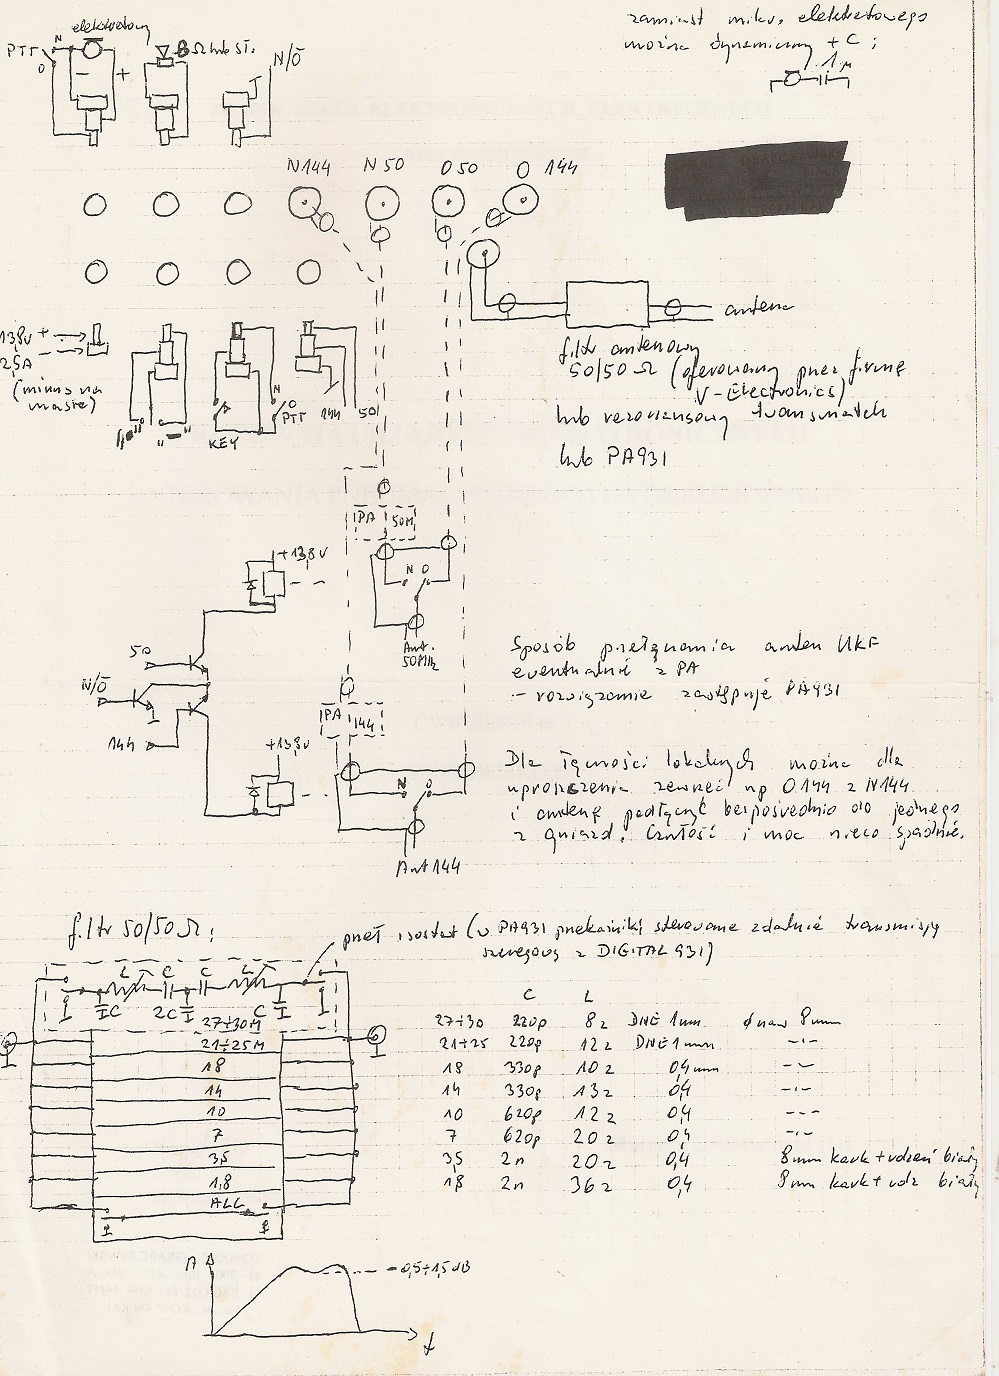 elektretowy
zamiast mikr. elektretowego
można dynamiczny + C ;
1µ
PTT
N
O
8Ω lub sł.
N/O̅
- +
N144 N50 O50 O 144
antena
filtr antenowy
50/50 Ω (oferowany przez firmę
V-Electronics)
lub rezonansowy transmatch
lub PA931
13,8V +
2,5A -
(minus na
masie)
"•" "—"
KEY
N
O
PTT
144 50
PA 50M
+13,8V
N O
Ant.
50MHz
50
N/O̅
144
Sposób przełączania anten UKF
ewentualnie z PA
- rozwiązanie zastępuje PA931
PA 144
+13,8V
N O
Ant 144
Dla łączności lokalnych można dla
uproszczenia zewrzeć np O144 z N144
i antenę podłączyć bezpośrednio do jednego
z gniazd. Czułość i moc nieco spadnie.
filtr 50/50Ω:
przeł isostat (w PA931 przekaźniki sterowane zdalnie transmisją
szeregową z DIGITAL 931)
L C C L
C 2C C
27÷30M
21÷25M
18
14
10
7
3,5
1,8
ALL
C L
27÷30 220p 8z DNE 1mm ϕ naw 8mm
21÷25 220p 12z DNE 1mm -"-
18 330p 10z 0,4mm -"-
14 330p 13z 0,4 -"-
10 620p 12z 0,4 -"-
7 620p 20z 0,4 -"-
3,5 2n 20z 0,4 8mm kark + rdzeń biały
1,8 2n 36z 0,4 8mm kark + rdz biały
A
-0,5÷1,5dB
f